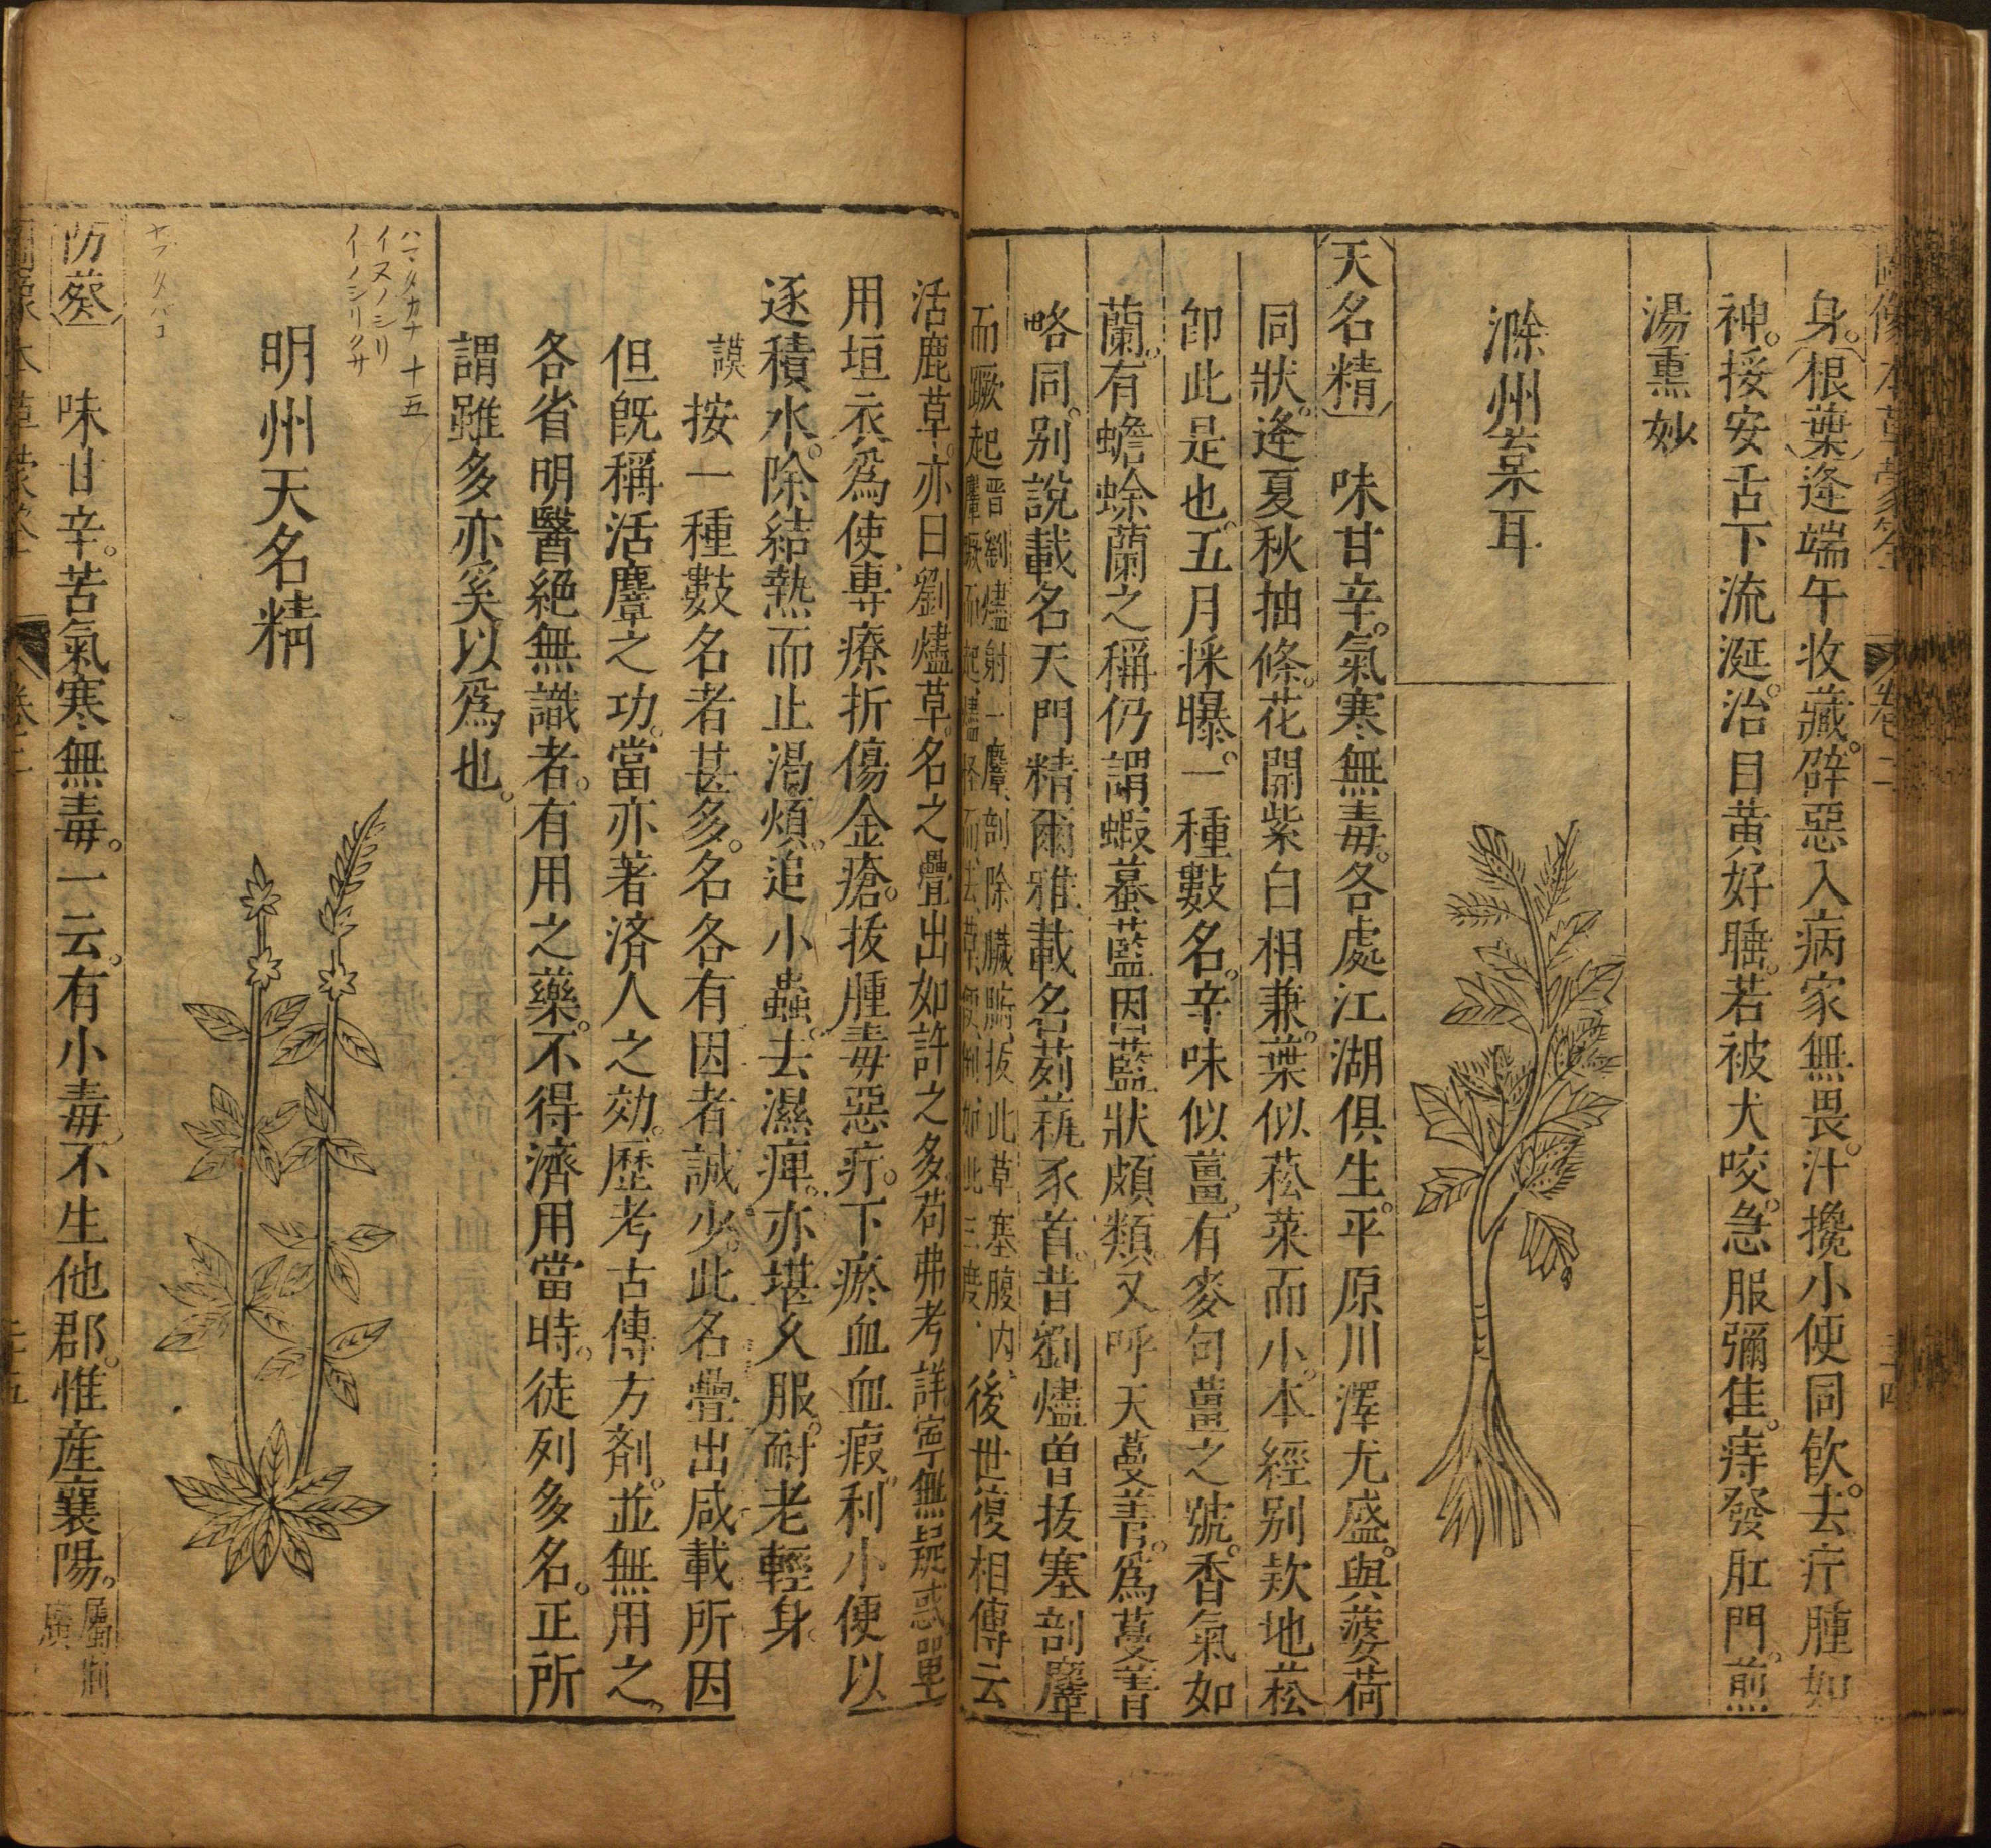 身。根葉逢端午收藏。辟惡入病家無畏。汁攙小使同飲。去疔腫如
神。接安舌下流涎。治目黃好睡。若被犬咬。急服彌佳。痔發肛門。煎
湯熏妙
滁州葈耳
天名精　味甘辛。氣寒無毒。各處江湖俱生。平原川澤尤盛。與薄荷
同狀。逢夏秋抽條。花開紫白相兼。葉似菘菜而小。本經別款地菘
卽此是也。五月採曝。一種數名。辛味似薑。有麥句薑之號。香氣如
蘭。有蟾蜍蘭之稱。仍謂蝦蟇藍。因藍狀頗類。又呼天蔓菁。爲蔓菁
略同。別說載名天門精。爾雅載名茢薽豕首。昔劉㶳曾拔塞剖麞
而蹶起晋劉㶳射一麞剖除臟腑拔此草塞腹內麞蹶而起㶳怪而去草便倒如此三度後世復相傳云
活鹿草。亦曰劉㶳草。名之疊出如許之多。苟弗考詳。寧無疑惑。單
用垣衣爲使。專療折傷金瘡。拔腫毒惡疔。下瘀血血瘕。利小便以
逐積水。除結熱而止渴煩。追小蟲。去濕痺。亦堪久服。耐老輕身
謨　按一種數名者甚多。名各有因者誠少。此名疊出。咸載所因
但旣稱活麞之功。當亦著済人之効。歷考古傳方剤。並無用之
各省明醫絕無識者。有用之藥。不得濟用當時。徒列多名。正所
謂雖多亦奚以爲也。
ハマタカナ 十五
イヌノシリ
イノシリクサ
明州天名精
ヤブタバコ
防葵　味甘辛。苦氣寒無毒。一云。有小毒。不生他郡。惟産襄陽。屬湖廣